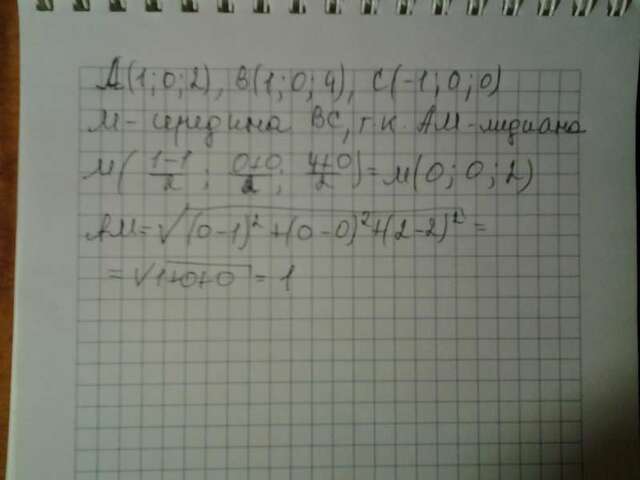 A(1;0;2), B(1;0;4), C(-1;0;0)
M - середина BC, т.к. AM - медиана
M( (1-1)/2 ; (0+0)/2 ; (4+0)/2 ) = M(0;0;2)
AM = √((0-1)² + (0-0)² + (2-2)²) =
= √(1+0+0) = 1